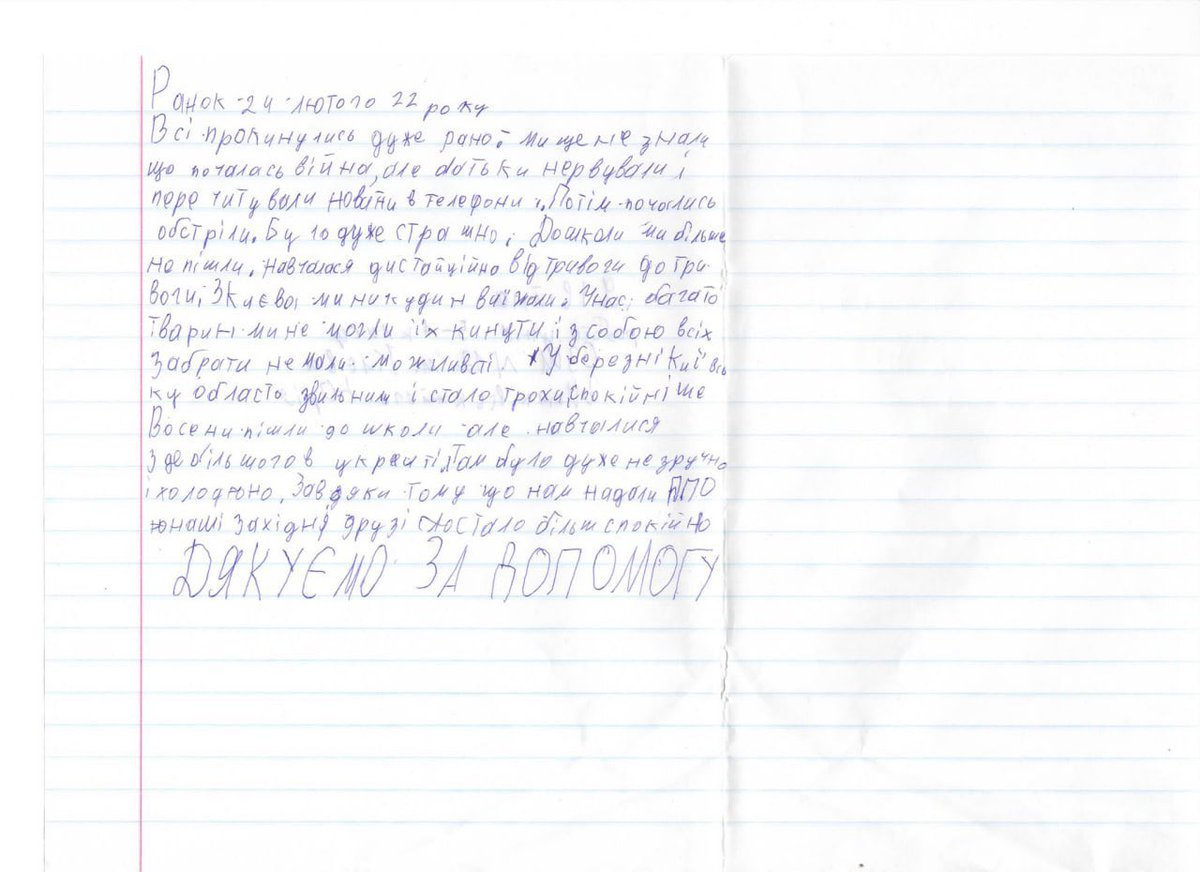 Ранок 24 лютого 22 року
Всі прокинулись дуже рано. Ми ще не знали
що почалась війна, але батьки нервували і
пере читували новини в телефони. Потім почались
обстріли. Було дуже страшно. До школи ми більше
не пішли. навчалася дистанційно від тривоги до три
воги. З Києва ми никуди не виїжали. У нас багато
тварин ми не могли їх кинути і з собою всіх
забрати не мали можливсті У березні Київсь
ку область звільнили і стало трохи спокійніше
Восени пішли до школи але навчалися
здебільшого в укритті. Там було дуже не зручно
і холодно. Завдяки тому що нам надали ППО
наші західні друзі стало більш спокійно
ДЯКУЄМО ЗА ДОПОМОГУ